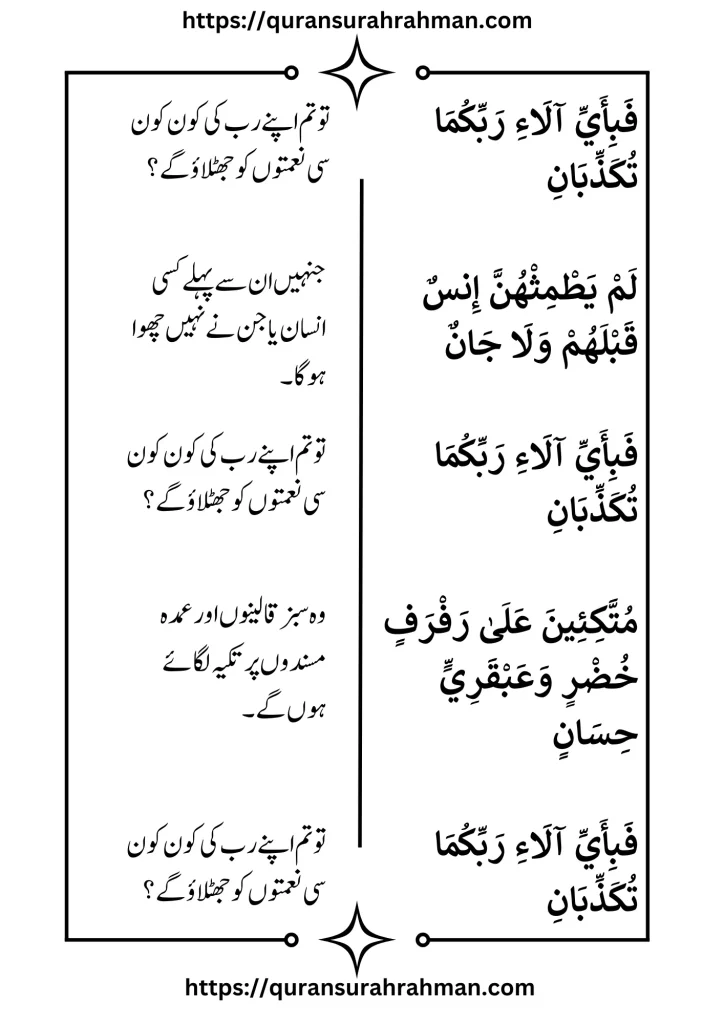 https://quransurahrahman.com
فَبِأَيِّ آلَاءِ رَبِّكُمَا
تُكَذِّبَانِ
تو تم اپنے رب کی کون کون
سی نعمتوں کو جھٹلاؤ گے ؟
لَمْ يَطْمِثْهُنَّ إِنسٌ
قَبْلَهُمْ وَلَا جَانٌّ
جنہیں ان سے پہلے کسی
انسان یا جن نے نہیں چھوا
ہو گا۔
فَبِأَيِّ آلَاءِ رَبِّكُمَا
تُكَذِّبَانِ
تو تم اپنے رب کی کون کون
سی نعمتوں کو جھٹلاؤ گے ؟
مُتَّكِئِينَ عَلَىٰ رَفْرَفٍ
خُضْرٍ وَعَبْقَرِيٍّ
حِسَانٍ
وہ سبز قالینوں اور عمدہ
مسندوں پر تکیہ لگائے
ہوں گے۔
فَبِأَيِّ آلَاءِ رَبِّكُمَا
تُكَذِّبَانِ
تو تم اپنے رب کی کون کون
سی نعمتوں کو جھٹلاؤ گے ؟
https://quransurahrahman.com